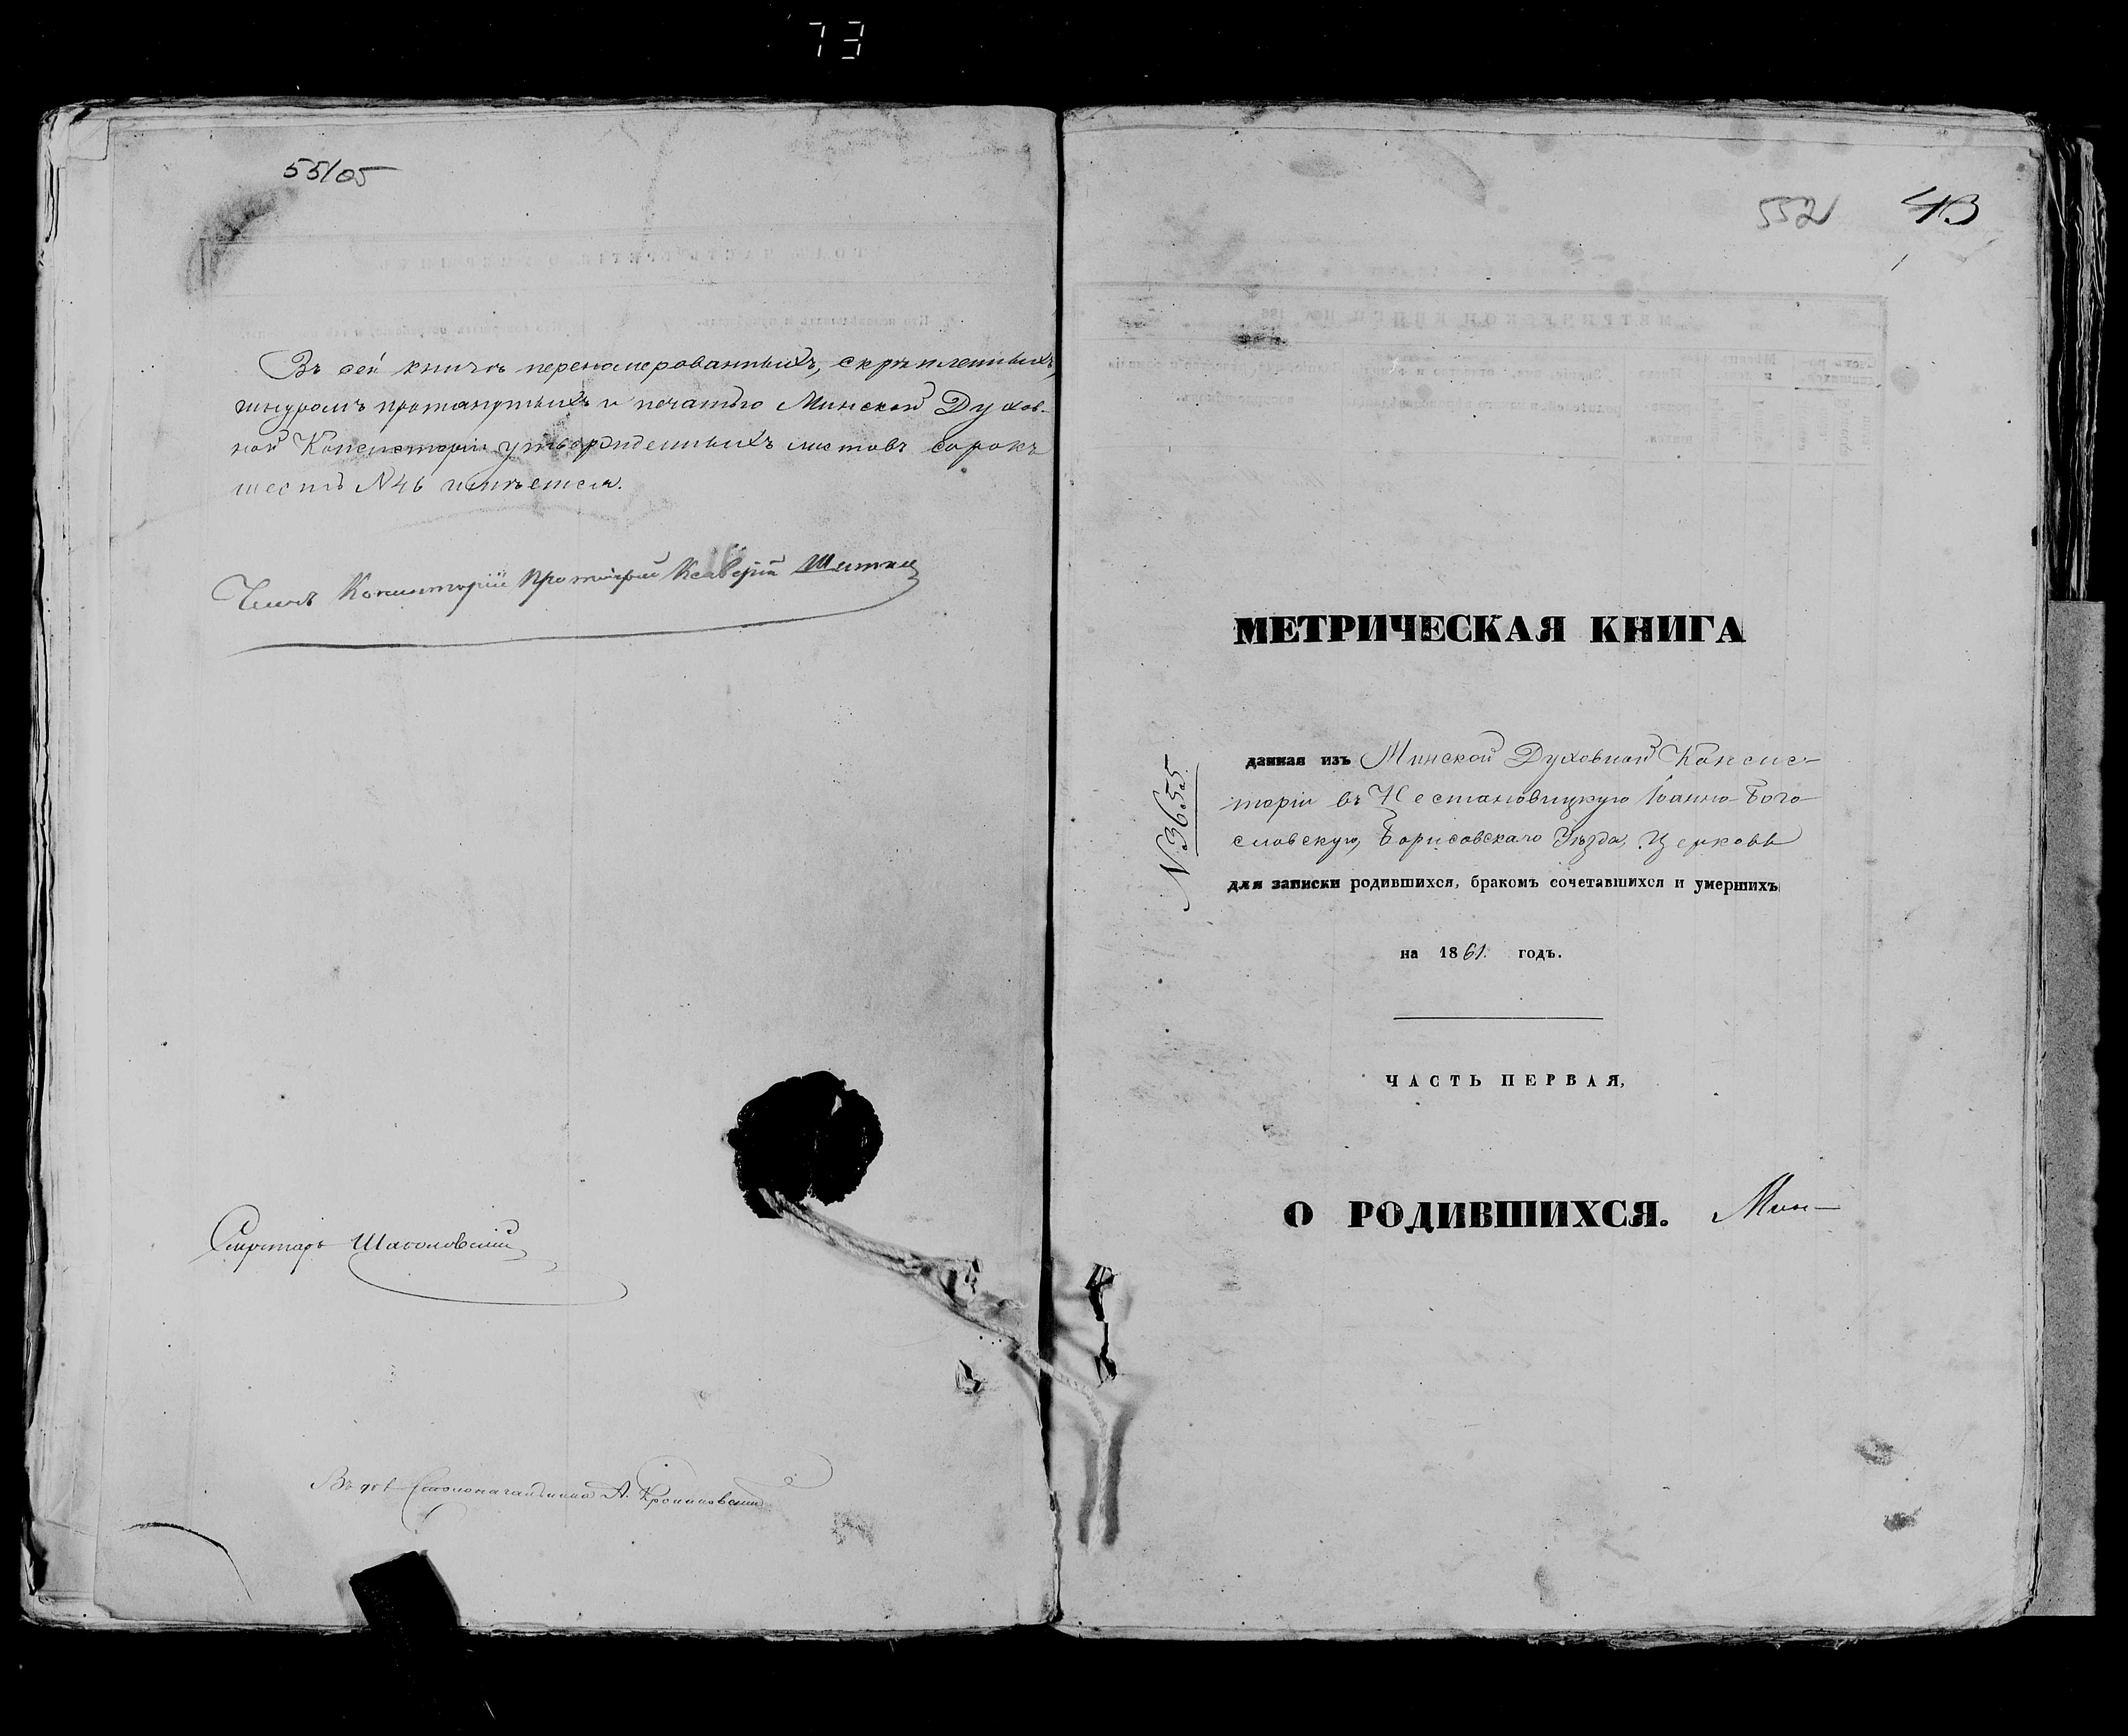 73
55105
Въ сей книгѣ перенумерованныхъ, скрѣпленныхъ,
шнуромъ протянутыхъ и печатью Минской Духов-
ной Консисторіи утвержденныхъ листовъ сорокъ
шесть N46 имѣется.
Членъ Консисторіи Протоіерей
Секретарь
Столоначальника А.
552 43
МЕТРИЧЕСКАЯ КНИГА
N 3655.
данная изъ Минской Духовной Консис-
торіи въ Нестановицкую Іоанно-Бого-
словскую, Борисовскаго Уѣзда, Церковь
для записки родившихся, бракомъ сочетавшихся и умершихъ
на 1861. годъ.
ЧАСТЬ ПЕРВАЯ,
О РОДИВШИХСЯ. Мин-